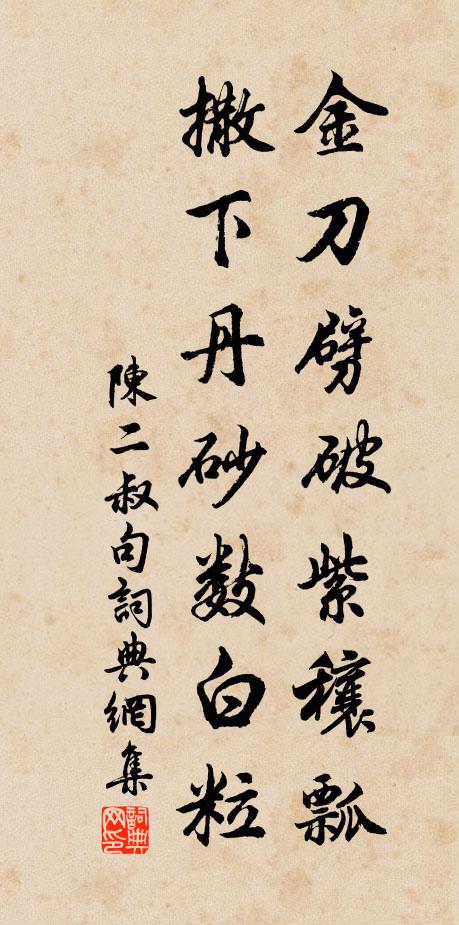 金刀劈破紫穰瓢
撒下丹砂数白粒
陳二叔句詞典網集
詞典网印